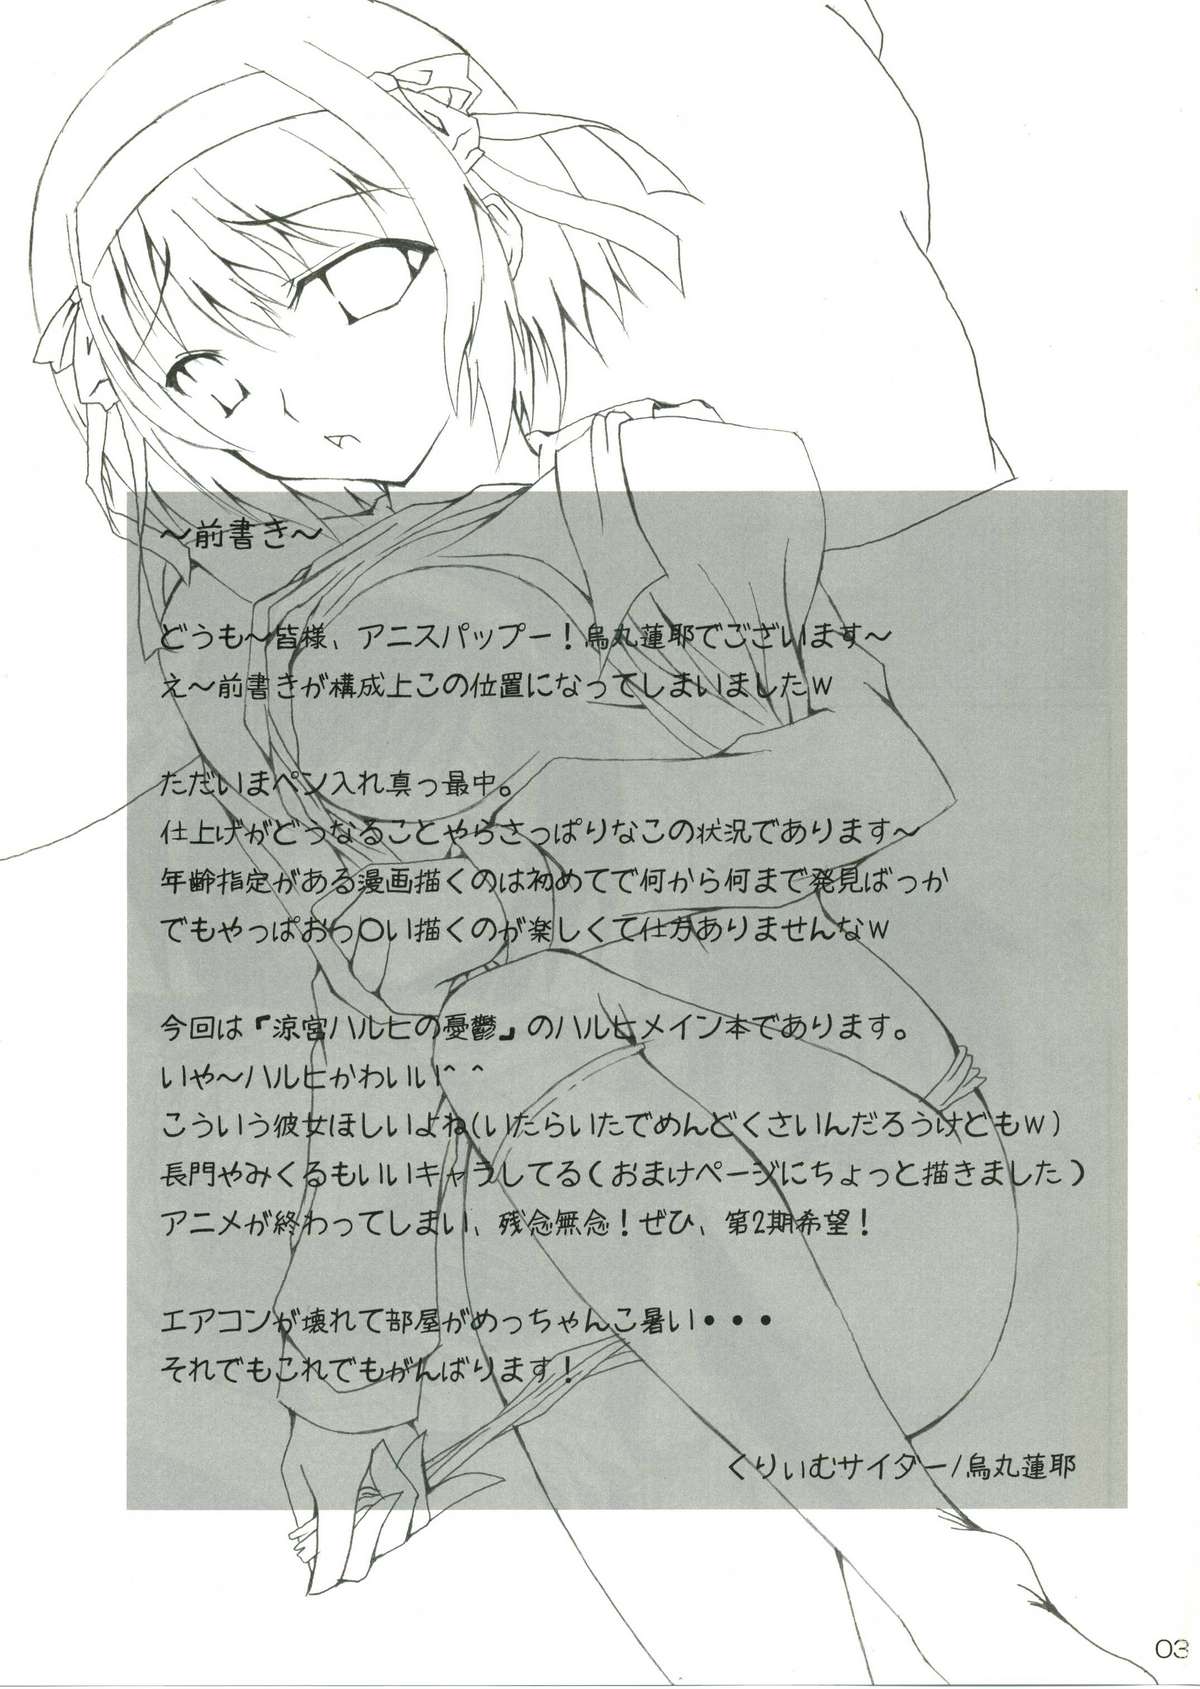 ～前書き～
どうも～皆様、アニスパップー！烏丸蓮耶でございます～
え～前書きが構成上この位置になってしまいましたｗ
ただいまペン入れ真っ最中。
仕上げがどうなることやらさっぱりなこの状況であります～
年齢指定がある漫画描くのは初めてで何から何まで発見ばっか
でもやっぱおっ〇い描くのが楽しくて仕方ありませんなｗ
今回は『涼宮ハルヒの憂鬱』のハルヒメイン本であります。
いや～ハルヒかわいい＾＾
こういう彼女ほしいよね(いたらいたでめんどくさいんだろうけどもｗ)
長門やみくるもいいキャラしてる(おまけページにちょっと描きました)
アニメが終わってしまい、残念無念！ぜひ、第2期希望！
エアコンが壊れて部屋がめっちゃんこ暑い・・・
それでもこれでもがんばります！
くりぃむサイダー/烏丸蓮耶
03